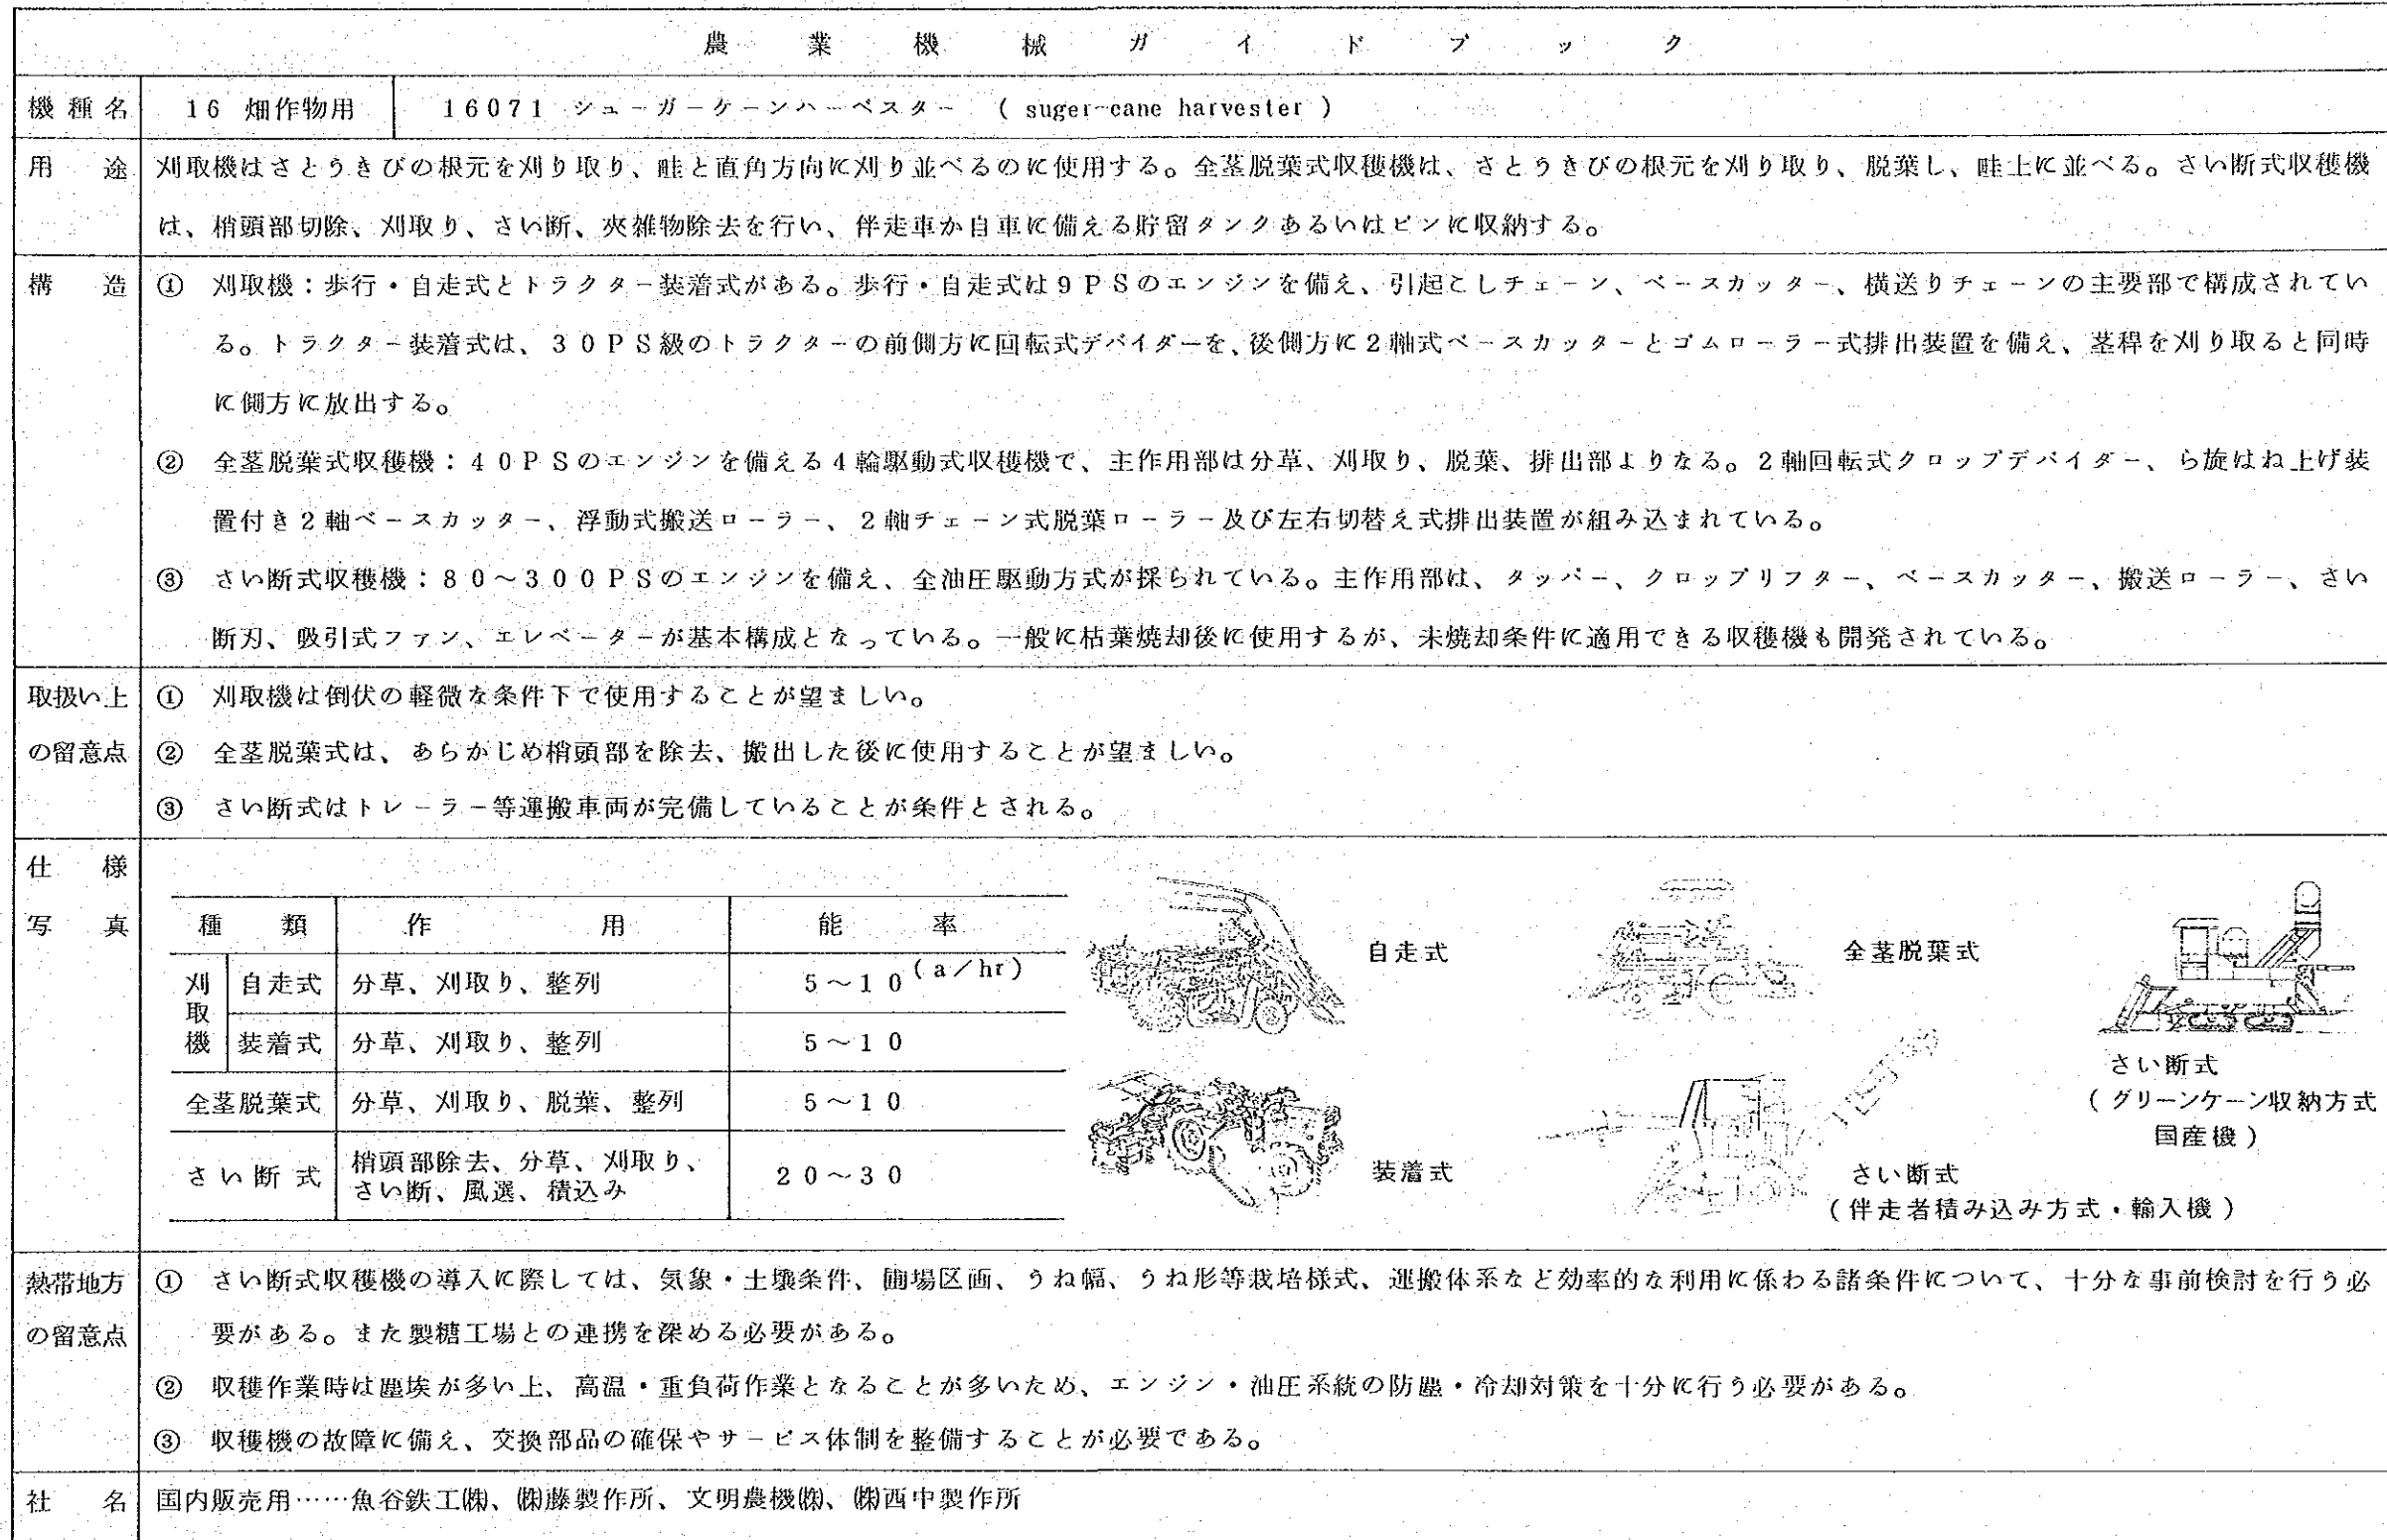 農業機械ガイドブック
機種名 16 畑作物用 16071 シューガーケーンハーベスター ( suger-cane harvester )
用途 刈取機はさとうきびの根元を刈り取り、畦と直角方向に刈り並べるのに使用する。全茎脱葉式収穫機は、さとうきびの根元を刈り取り、脱葉し、畦上に並べる。さい断式収穫機
は、梢頭部切除、刈取り、さい断、夾雑物除去を行い、伴走車か自車に備える貯留タンクあるいはビンに収納する。
構造 ① 刈取機：歩行・自走式とトラクター装着式がある。歩行・自走式は9PSのエンジンを備え、引起こしチェーン、ベースカッター、横送りチェーンの主要部で構成されてい
る。トラクター装着式は、30PS級のトラクターの前側方に回転式デバイダーを、後側方に2軸式ベースカッターとゴムローラー式排出装置を備え、茎稈を刈り取ると同時
に側方に放出する。
② 全茎脱葉式収穫機：40PSのエンジンを備える4輪駆動式収穫機で、主作用部は分草、刈取り、脱葉、排出部よりなる。2軸回転式クロップデバイダー、ら旋はね上げ装
置付き2軸ベースカッター、浮動式搬送ローラー、2軸チェーン式脱葉ローラー及び左右切替え式排出装置が組み込まれている。
③ さい断式収穫機：80～300PSのエンジンを備え、全油圧駆動方式が採られている。主作用部は、タッパー、クロップリフター、ベースカッター、搬送ローラー、さい
断刃、吸引式ファン、エレベーターが基本構成となっている。一般に枯葉焼却後に使用するが、未焼却条件に適用できる収穫機も開発されている。
取扱い上 ① 刈取機は倒伏の軽微な条件下で使用することが望ましい。
の留意点 ② 全茎脱葉式は、あらかじめ梢頭部を除去、搬出した後に使用することが望ましい。
③ さい断式はトレーラー等運搬車両が完備していることが条件とされる。
仕様
写真
種類 作用 能率
刈取機 自走式 分草、刈取り、整列 5～10 (a/hr)
装着式 分草、刈取り、整列 5～10
全茎脱葉式 分草、刈取り、脱葉、整列 5～10
さい断式 梢頭部除去、分草、刈取り、 20～30
さい断、風選、積込み
自走式
全茎脱葉式
さい断式
( グリーンケーン収納方式
国産機 )
装着式
さい断式
( 伴走者積み込み方式・輸入機 )
熱帯地方 ① さい断式収穫機の導入に際しては、気象・土壌条件、圃場区画、うね幅、うね形等栽培様式、運搬体系など効率的な利用に係わる諸条件について、十分な事前検討を行う必
の留意点 要がある。また製糖工場との連携を深める必要がある。
② 収穫作業時は塵埃が多い上、高温・重負荷作業となることが多いため、エンジン・油圧系統の防塵・冷却対策を十分に行う必要がある。
③ 収穫機の故障に備え、交換部品の確保やサービス体制を整備することが必要である。
社名 国内販売用……魚谷鉄工㈱、㈱藤製作所、文明農機㈱、㈱西中製作所